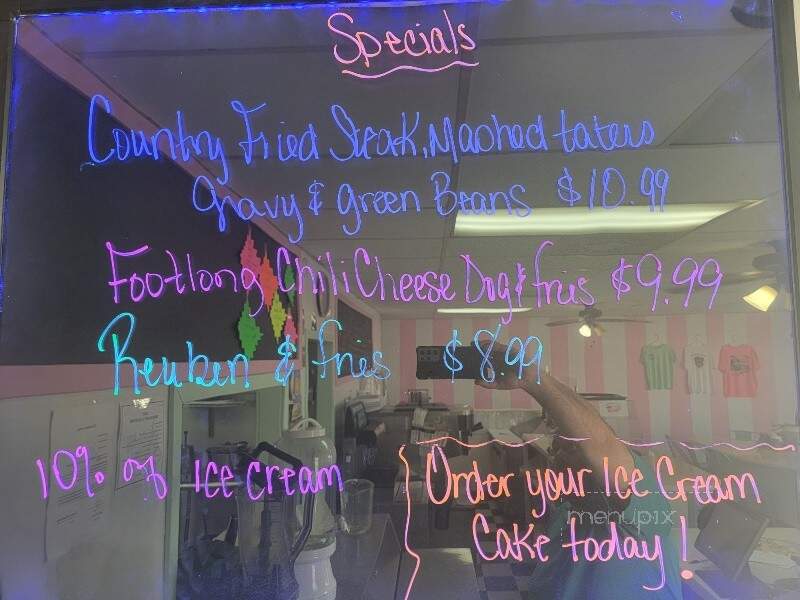 Specials
Country Fried Steak, Mashed taters
gravy & green Beans $10.99
Footlong Chili Cheese Dog & fries $9.99
Reuben & fries $8.99
10% off Ice cream
Order your Ice Cream
Cake today!
menupix